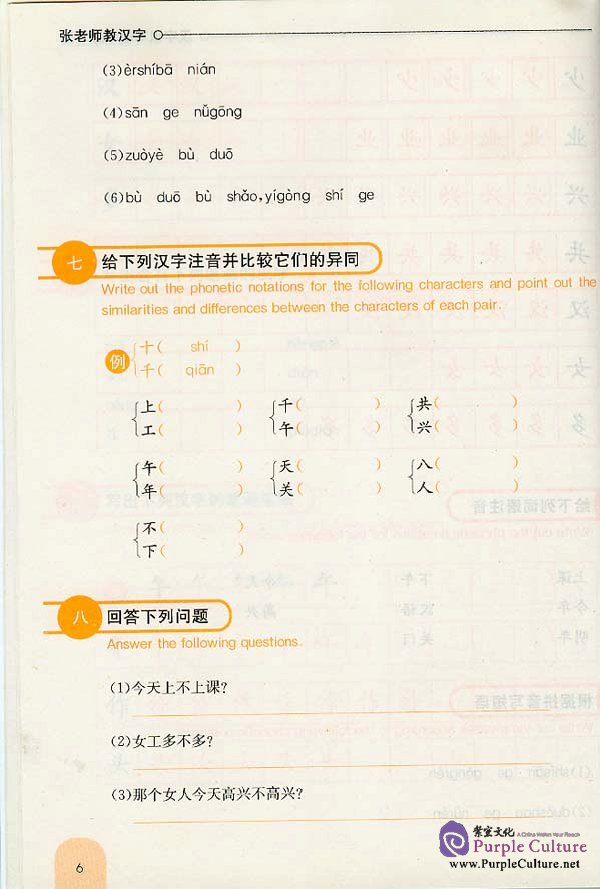 张老师教汉字
(3)èrshíbā nián
(4)sān ge nǚgōng
(5)zuòyè bù duō
(6)bù duō bù shǎo,yígòng shí ge
七 给下列汉字注音并比较它们的异同
Write out the phonetic notations for the following characters and point out the
similarities and differences between the characters of each pair.
例 十( shí )
千( qiān )
上( ) 千( ) 共( )
工( ) 午( ) 兴( )
午( ) 天( ) 八( )
年( ) 关( ) 人( )
不( )
下( )
八 回答下列问题
Answer the following questions.
(1)今天上不上课?
(2)女工多不多?
(3)那个女人今天高兴不高兴?
6
紫宝文化 A China Within Your Reach
Purple Culture
www.PurpleCulture.net